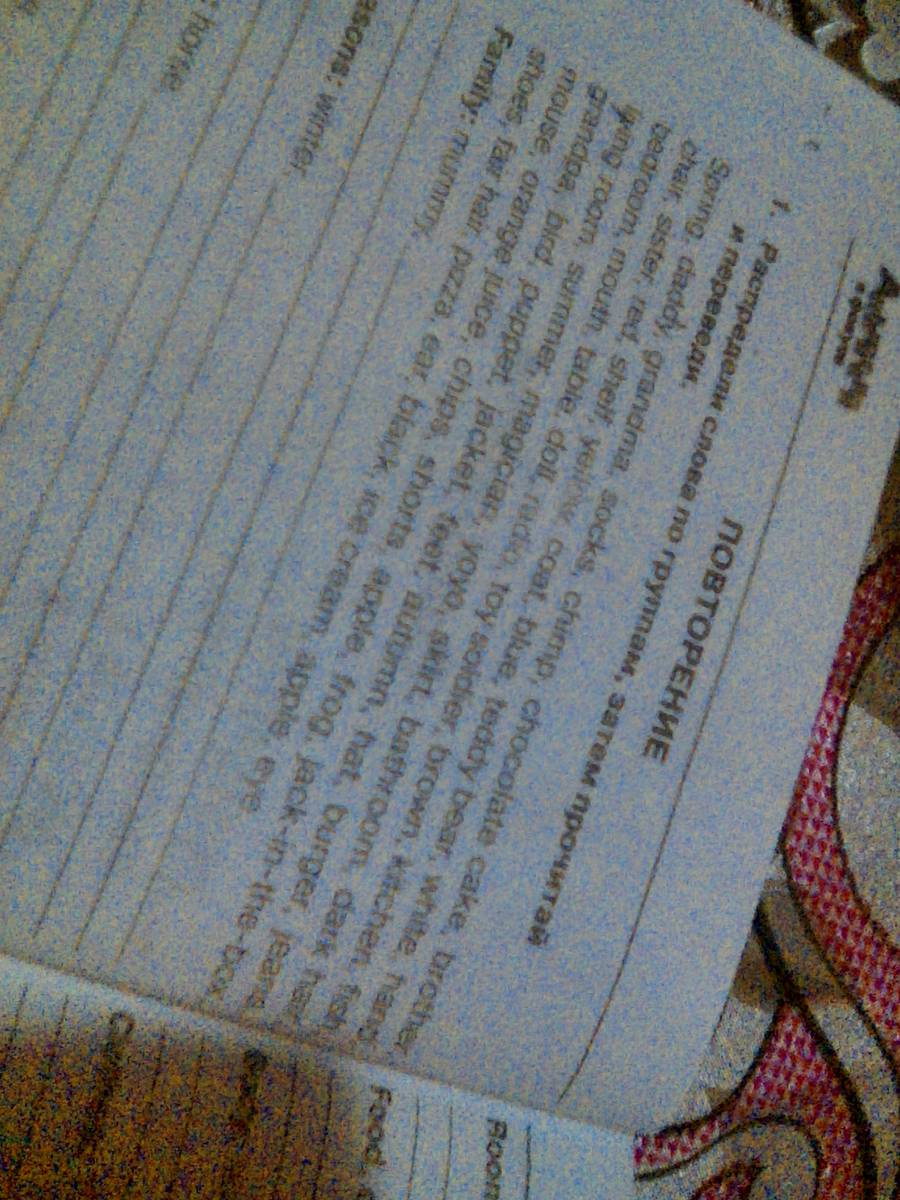 ПОВТОРЕНИЕ
1. Распредели слова по группам, затем прочитай
и переведи.
Spring, daddy, grandma, socks, chimp, chocolate cake, brother,
chair, sister, red, shelf, yellow, coat, blue, teddy bear, white, hand,
bedroom, mouth, table, doll, radio, toy soldier, brown, kitchen, fish,
living room, summer, magician, yoyo, skirt, bathroom, dark hair,
grandpa, bird, puppet, jacket, feet, autumn, hat, burger, jeans,
mouse, orange juice, chips, shorts, apple, frog, jack-in-the-box,
shoes, fair hair, pizza, ear, black, ice cream, apple, eye
Family: mummy,
asons: winter,
: horse
Room
Food